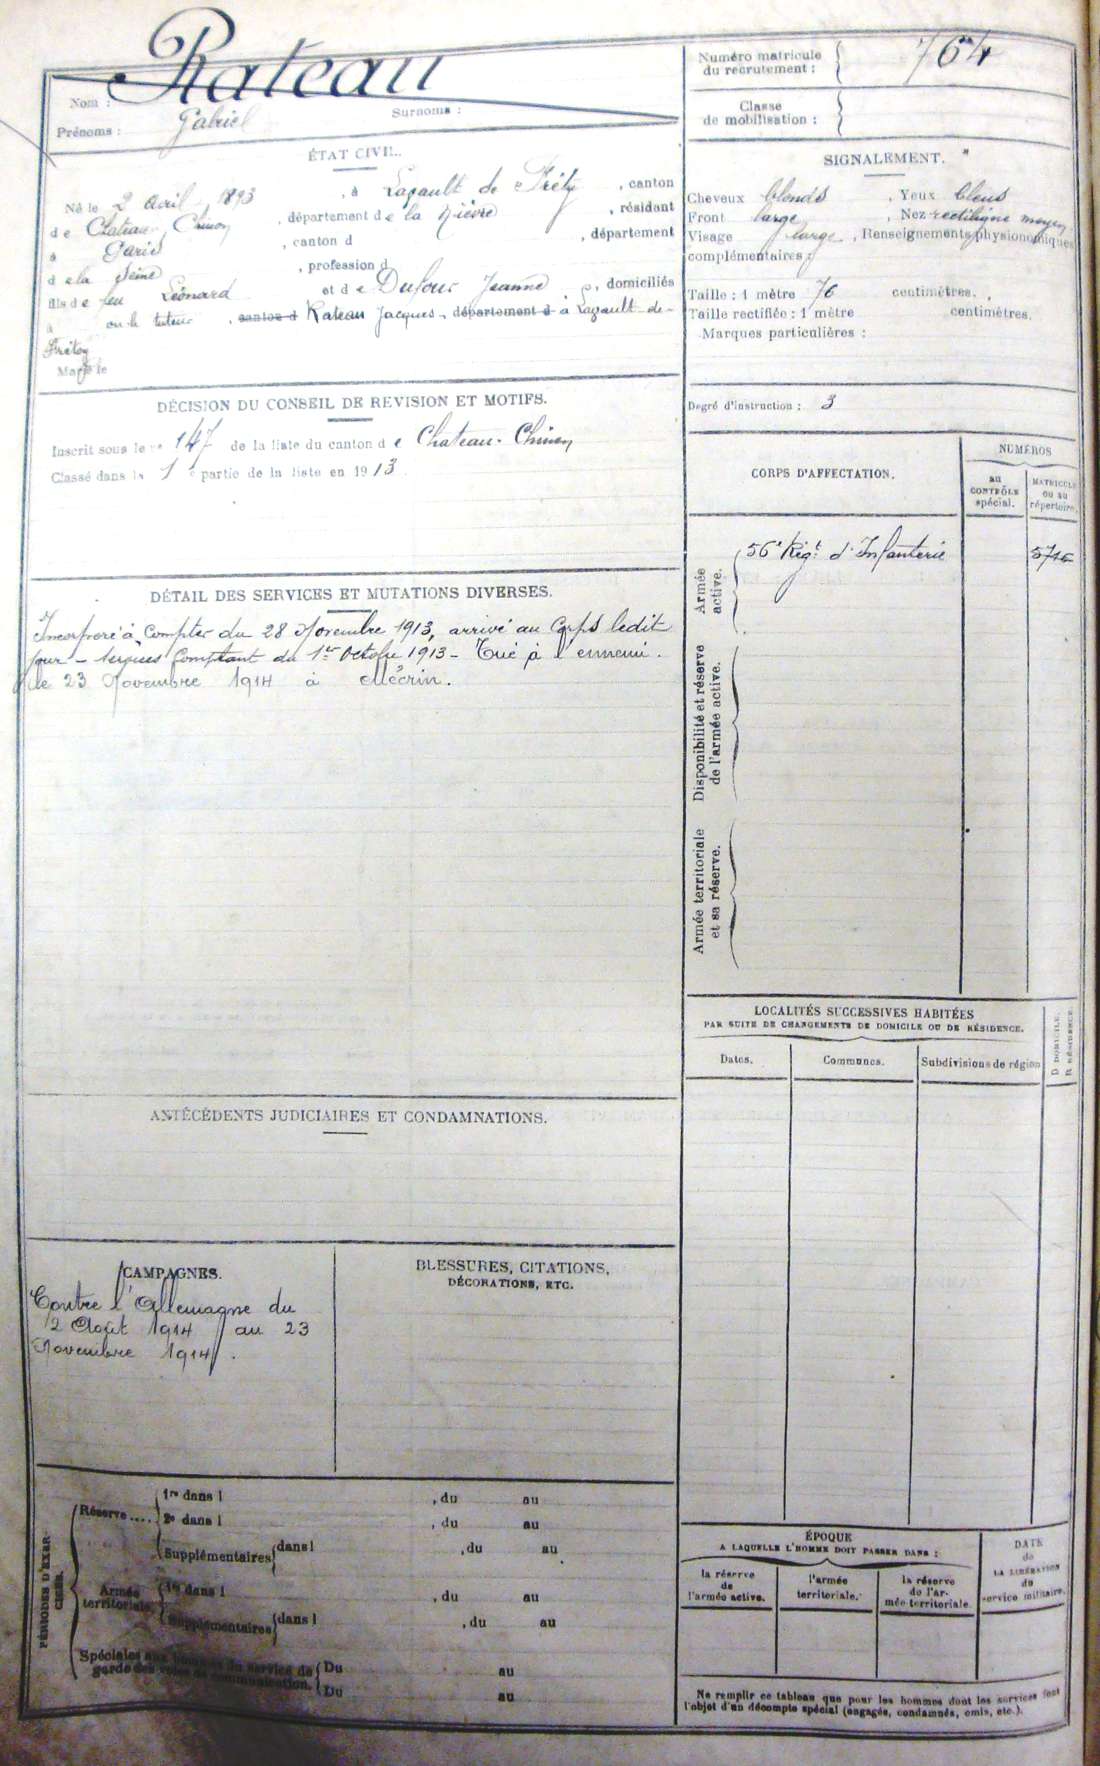 Rateau
Nom :
Prénoms : Gabriel Surnoms :
ÉTAT CIVIL.
Né le 2 avril 1893, à Lavault de Frétoy, canton
de Chateau Chinon, département de la Nièvre, résidant
à Paris, canton d , département
de la Seine, profession d
fils de feu Léonard et de Dufour Jeanne, domiciliés
à ou le tuteur, canton d Rateau Jacques, département d à Lavault-de-
Frétoy
Marié le
DÉCISION DU CONSEIL DE REVISION ET MOTIFS.
Inscrit sous le n° 147 de la liste du canton de Chateau-Chinon
Classé dans la 1 e partie de la liste en 1913
DÉTAIL DES SERVICES ET MUTATIONS DIVERSES.
Incorporé à compter du 28 Novembre 1913, arrivé au Corps ledit
jour - services comptant du 1er Octobre 1913 - Tué à l'ennemi.
le 23 Novembre 1914 à Mécrin.
ANTÉCÉDENTS JUDICIAIRES ET CONDAMNATIONS.
CAMPAGNES.
Contre l'Allemagne du
2 Août 1914 au 23
Novembre 1914.
BLESSURES, CITATIONS,
DÉCORATIONS, ETC.
PÉRIODES D'EXER-
CICES.
Réserve ....
1re dans l , du au
2e dans l , du au
Supplémentaires dans l , du au
Armée
territoriale
1re dans l , du au
Supplémentaires dans l , du au
Spéciales aux hommes du service de
garde des voies de communication.
Du au
Du au
Numéro matricule
du recrutement : 764
Classe
de mobilisation :
SIGNALEMENT.
Cheveux blonds, Yeux bleus
Front large, Nez rectiligne moyen
Visage large, Renseignements physionomiques
complémentaires :
Taille : 1 mètre 76 centimètres.
Taille rectifiée : 1 mètre centimètres.
Marques particulières :
Degré d'instruction : 3
CORPS D'AFFECTATION.
NUMÉROS
au
CONTRÔLE
spécial.
MATRICULE
ou au
répertoire.
Armée
active.
56e Régt d'Infanterie
Disponibilité et réserve
de l'armée active.
Armée territoriale
et sa réserve.
LOCALITÉS SUCCESSIVES HABITÉES
PAR SUITE DE CHANGEMENTS DE DOMICILE OU DE RÉSIDENCE.
D. DOMICILE.
R. RÉSIDENCE.
Dates. Communes. Subdivisions de région
ÉPOQUE
A LAQUELLE L'HOMME DOIT PASSER DANS :
la réserve
de
l'armée active.
l'armée
territoriale.
la réserve
de l'ar-
mée territoriale.
DATE
de
LA LIBÉRATION
du
service militaire.
Ne remplir ce tableau que pour les hommes dont les services font
l'objet d'un décompte spécial (engagés, condamnés, omis, etc.).